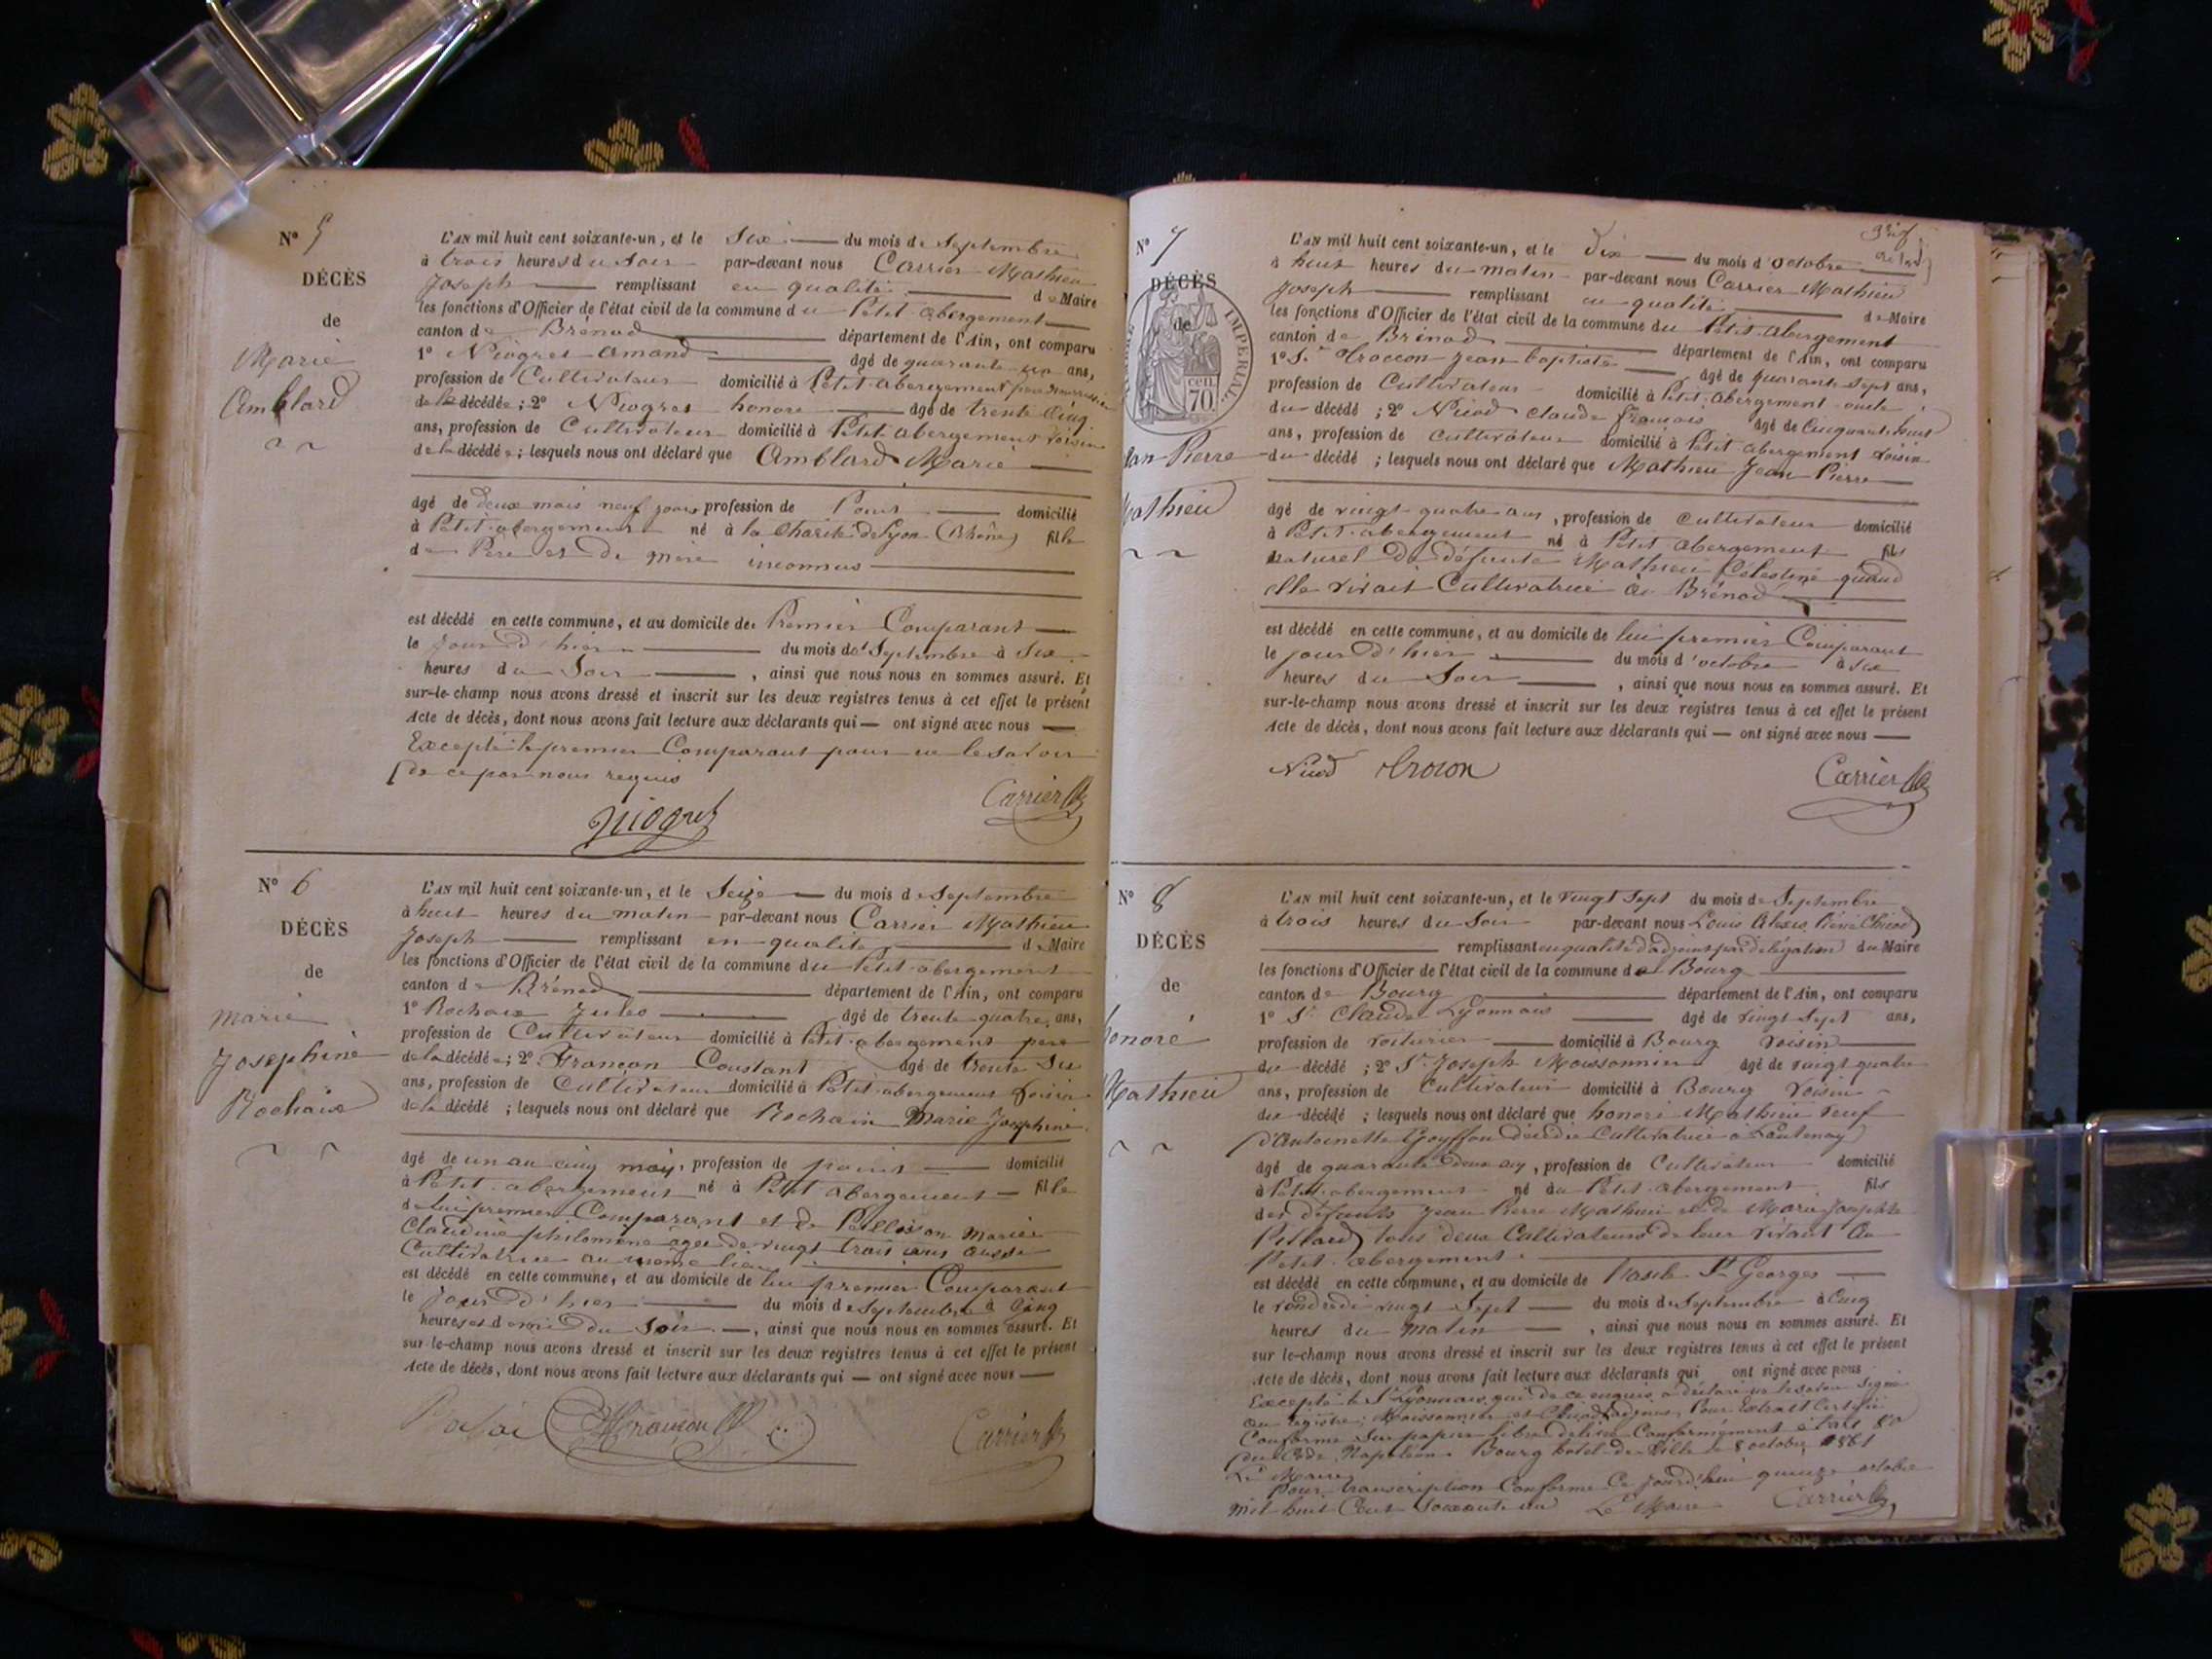 N° 5
DÉCÈS
de
Marie
Amblard
L'AN mil huit cent soixante-un, et le Six du mois de Septembre
à trois heures du Soir par-devant nous Carrier Mathieu
Joseph remplissant en qualité de Maire
les fonctions d'Officier de l'état civil de la commune du Petit abergement
canton de Brénod département de l'Ain, ont comparu
1° Niogret Amand âgé de quarante ans,
profession de Cultivateur domicilié à Petit-abergement père nourricier
de la décédée ; 2° Niogret honoré âgé de trente cinq
ans, profession de Cultivateur domicilié à Petit abergement voisin
de la décédée ; lesquels nous ont déclaré que Amblard Marie
âgé de deux mois neuf jours profession de domicilié
à Petit-abergement né à la Charité de Lyon (Rhône) fille
de Père et de mère inconnus
est décédé en cette commune, et au domicile de Premier Comparant
le jour d'hier du mois de Septembre à Six
heures du Soir , ainsi que nous nous en sommes assuré. Et
sur-le-champ nous avons dressé et inscrit sur les deux registres tenus à cet effet le présent
Acte de décès, dont nous avons fait lecture aux déclarants qui — ont signé avec nous —
Excepté le premier Comparant pour ne le savoir
de ce par nous requis
Niogret Carrier
N° 6
DÉCÈS
de
Marie
Josephine
Rochaix
L'AN mil huit cent soixante-un, et le Seize du mois de Septembre
à huit heures du matin par-devant nous Carrier Mathieu
Joseph remplissant en qualité de Maire
les fonctions d'Officier de l'état civil de la commune du Petit-abergement
canton de Brénod département de l'Ain, ont comparu
1° Rochaix Jules âgé de trente quatre ans,
profession de Cultivateur domicilié à Petit-abergement père
de la décédée ; 2° Françon Constant âgé de trente Six
ans, profession de Cultivateur domicilié à Petit-abergement Voisin
de la décédé ; lesquels nous ont déclaré que Rochaix Marie Josephine
âgé de un an cinq mois, profession de domicilié
à Petit-abergement né à Petit abergement — fille
de lui premier Comparant et de Marie
Claudine philomène agée de vingt trois ans aussi
Cultivatrice au même lieu
est décédé en cette commune, et au domicile de lui premier Comparant
le jour d'hier du mois de Septembre à Cinq
heures et demie du Soir —, ainsi que nous nous en sommes assuré. Et
sur-le-champ nous avons dressé et inscrit sur les deux registres tenus à cet effet le présent
Acte de décès, dont nous avons fait lecture aux déclarants qui — ont signé avec nous —
Françon Carrier
N° 7
DÉCÈS
de
TIMBRE IMPÉRIAL
70 cen.
Jean Pierre
Mathieu
L'AN mil huit cent soixante-un, et le Dix du mois d'octobre
à huit heures du matin par-devant nous Carrier Mathieu
Joseph remplissant en qualité de Maire
les fonctions d'Officier de l'état civil de la commune du Petit-abergement
canton de Brénod département de l'Ain, ont comparu
1° Sr Troccon Jean baptiste âgé de quarante sept ans,
profession de Cultivateur domicilié à Petit-abergement oncle
du décédé ; 2° Nicod Claude François âgé de Cinquante huit
ans, profession de cultivateur domicilié à Petit abergement Voisin
du décédé ; lesquels nous ont déclaré que Mathieu Jean Pierre
âgé de vingt quatre ans, profession de cultivateur domicilié
à Petit-abergement né à Petit abergement fils
naturel de défunte Mathieu Célestine quand
elle vivait Cultivatrice à Brénod
est décédé en cette commune, et au domicile de lui premier Comparant
le jour d'hier du mois d'octobre à six
heures du Soir , ainsi que nous nous en sommes assuré. Et
sur-le-champ nous avons dressé et inscrit sur les deux registres tenus à cet effet le présent
Acte de décès, dont nous avons fait lecture aux déclarants qui — ont signé avec nous —
Nicod Carrier
N° 8
DÉCÈS
de
honoré
Mathieu
L'AN mil huit cent soixante-un, et le vingt sept du mois de Septembre
à trois heures du Soir par-devant nous Louis Alexis
remplissant en qualité d'adjoint par délégation du Maire
les fonctions d'Officier de l'état civil de la commune de Bourg
canton de Bourg département de l'Ain, ont comparu
1° Sr Claude Lyonnais âgé de vingt Sept ans,
profession de voiturier domicilié à Bourg voisin
du décédé ; 2° Sr Joseph Moissonnier âgé de vingt quatre
ans, profession de Cultivateur domicilié à Bourg voisin
du décédé ; lesquels nous ont déclaré que honoré Mathieu veuf
d'Antoinette Goyffon décédée Cultivatrice à Lantenay
âgé de quarante deux ans, profession de Cultivateur domicilié
à Petit-abergement né au Petit-abergement fils
des défunts Jean Pierre Mathieu et de Marie Josephte
tous deux Cultivateurs de leur vivant au
Petit-abergement
est décédé en cette commune, et au domicile de St Georges
le vendredi vingt Sept du mois de Septembre à Cinq
heures du Matin , ainsi que nous nous en sommes assuré. Et
sur-le-champ nous avons dressé et inscrit sur les deux registres tenus à cet effet le présent
Acte de décès, dont nous avons fait lecture aux déclarants qui ont signé avec nous
Excepté le Sr Lyonnais qui de ce enquis a déclaré ne le savoir Signé
au registre : Moissonnier et adjoint, Pour Extrait Certifié
Conforme Sur papier libre délivré Conformément à l'art 80
du Code Napoléon Bourg hotel de Ville le 8 octobre 1861
Le Maire
Pour transcription Conforme Ce jourd'hui quinze octobre
mil huit Cent Soixante un Le Maire Carrier